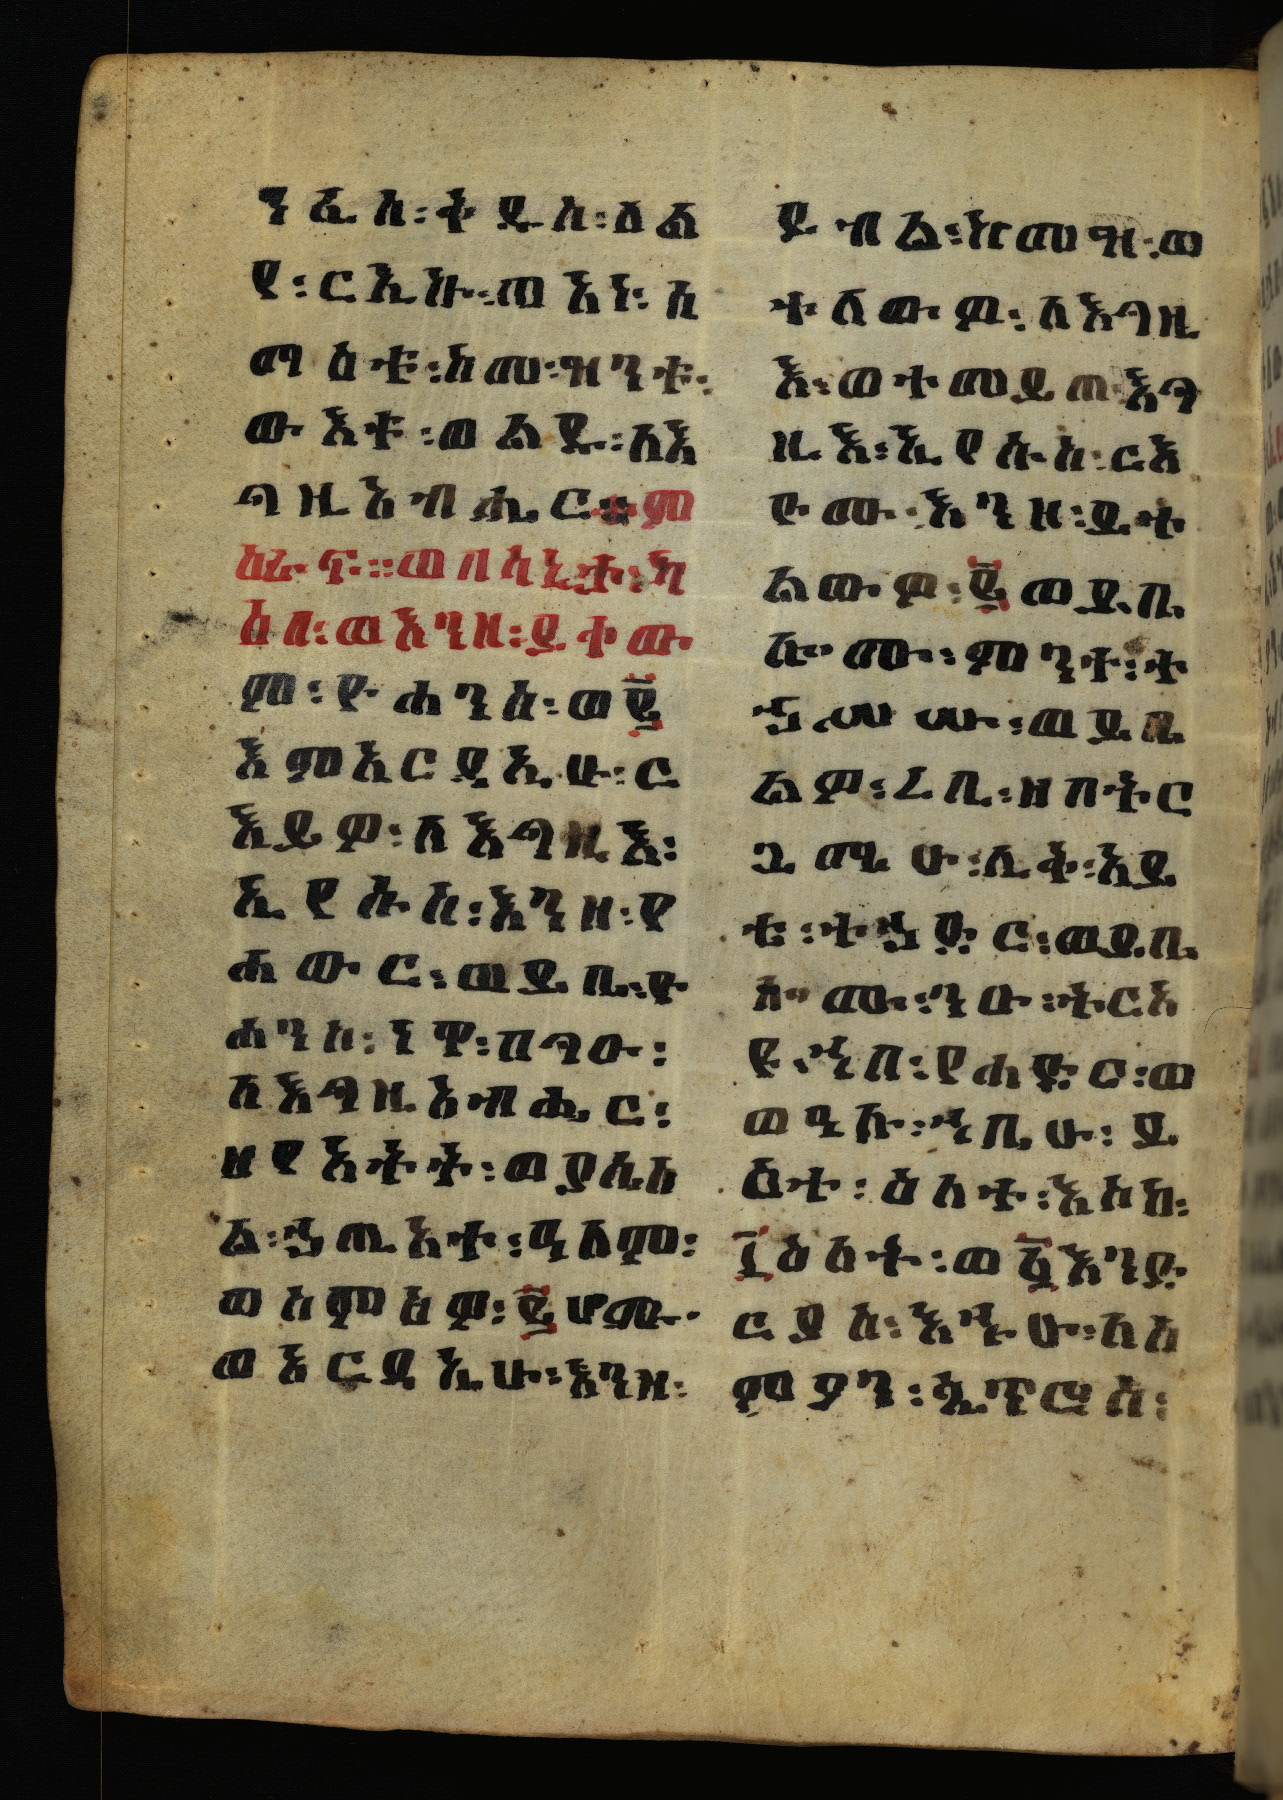 ንፈስ፡ቅዱስ፡ዕል
የ፡ርኢኩ፡ወእነ፡ስ
ማዕቱ፡ከመ፡ዝንቱ፡
ውእቱ፡ወልዱ፡ለእ
ግዚአብሔር፨ም
ዕራፍ፡፡ወበሳኒታ፡ካ
ዕበ፡ወእንዘ፡ይቀው
ም፡ዮሐንስ፡ወ፪
እምአርዳኢሁ፡ር
እይዎ፡ለእግዚእ፡
ኢየሱስ፡እንዘ፡የ
ሐውር፡ወይቤ፡ዮ
ሐንስ፡ነዋ፡በግዑ፡
ለእግዚአብሔር፡
ዘየአትት፡ወያሴስ
ል፡ኃጢአተ፡ዓለም፡
ወሰምዕዎ፡፪ሆሙ፡
ወአርዳኢሁ፡እንዘ፡
ይብል፡ከመዝ፡ወ
ተለውዎ፡ለእግዚ
እ፡ወተመይጠ፡እግ
ዚእ፡ኢየሱስ፡ርእ
ዮሙ፡እንዘ፡ይት
ልውዎ፡፪ወይቤ
ሎሙ፡ምንተ፡ት
ኃሡሡ፡ወይቤ
ልዎ፡ረቢ፡ዘበትር
ጓሜሁ፡ሊቅ፡አይ
ቴ፡ተኃድር፡ወይቤ
ሎሙ፡ንዑ፡ትርአ
ዩ፡ኀበ፡የሐድር፡ወ
ወዓሉ፡ኀቤሁ፡ይ
ዕተ፡ዕለተ፡እስከ፡
፲ዕዕት፡ወ፩እንድ
ርያስ፡እኁሁ፡ለስ
ምዖን፡ጴጥሮስ፡